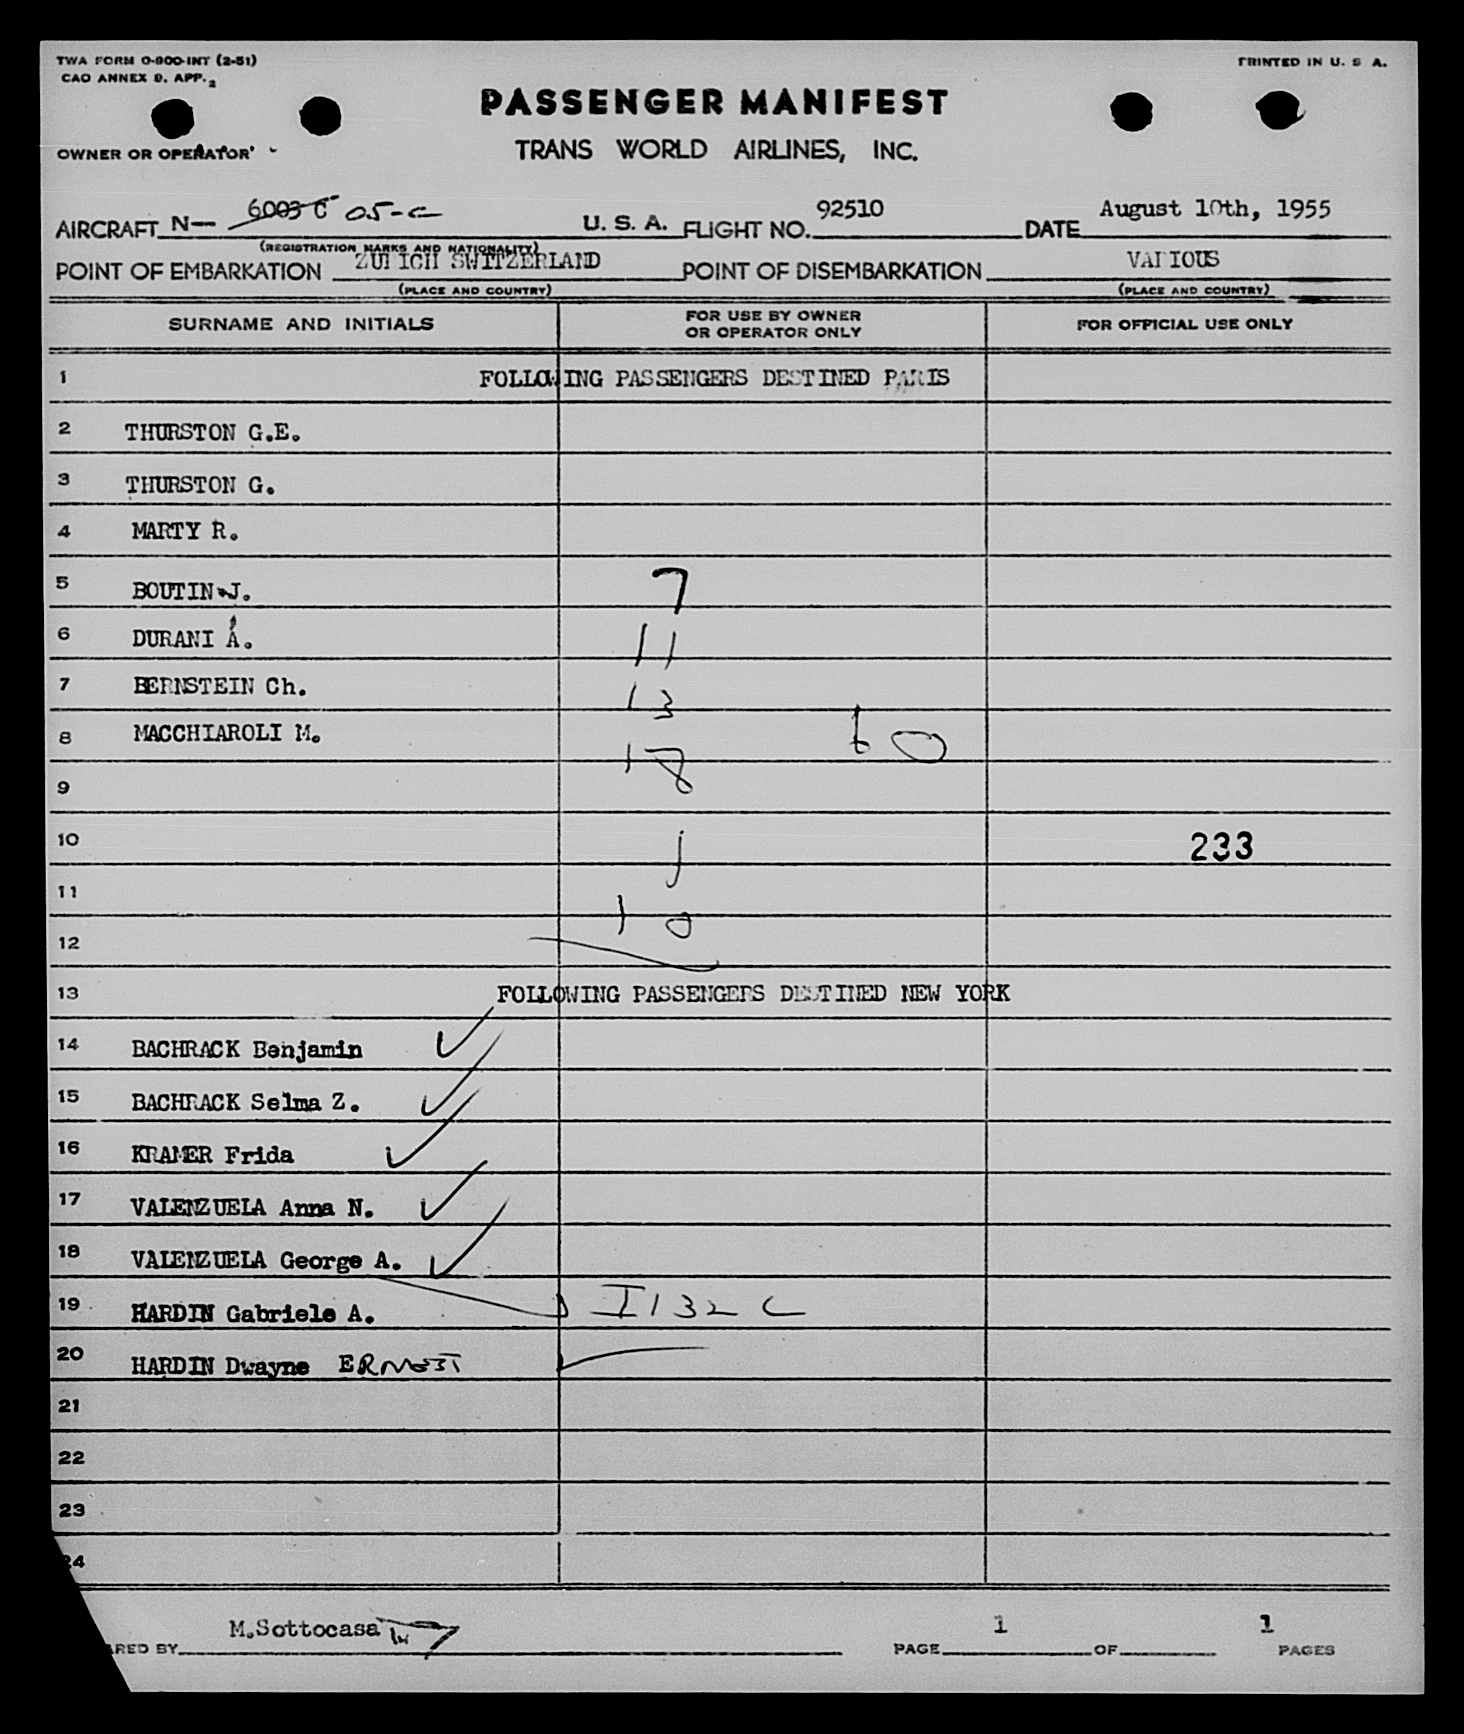 TWA FORM O-800-INT (2-51)
CAO ANNEX 9. APP. 2
PRINTED IN U. S. A.
PASSENGER MANIFEST
OWNER OR OPERATOR TRANS WORLD AIRLINES, INC.
AIRCRAFT N— 6003 C 05-C U. S. A. FLIGHT NO. 92510 DATE August 10th, 1955
(REGISTRATION MARKS AND NATIONALITY)
POINT OF EMBARKATION ZURICH SWITZERLAND POINT OF DISEMBARKATION VARIOUS
(PLACE AND COUNTRY) (PLACE AND COUNTRY)
SURNAME AND INITIALS FOR USE BY OWNER OR OPERATOR ONLY FOR OFFICIAL USE ONLY
1 FOLLOWING PASSENGERS DESTINED PARIS
2 THURSTON G.E.
3 THURSTON G.
4 MARTY R.
5 BOUTIN J. 7
6 DURANI A. 11
7 BERNSTEIN Ch. 13
8 MACCHIAROLI M. 18 60
9
10 233
11 10
12
13 FOLLOWING PASSENGERS DESTINED NEW YORK
14 BACHRACK Benjamin
15 BACHRACK Selma Z.
16 KRAMER Frida
17 VALENZUELA Anna N.
18 VALENZUELA George A.
19 HARDIN Gabriele A. I132 C
20 HARDIN Dwayne ERNEST
21
22
23
24
ARED BY M.Sottocasa PAGE 1 OF 1 PAGES